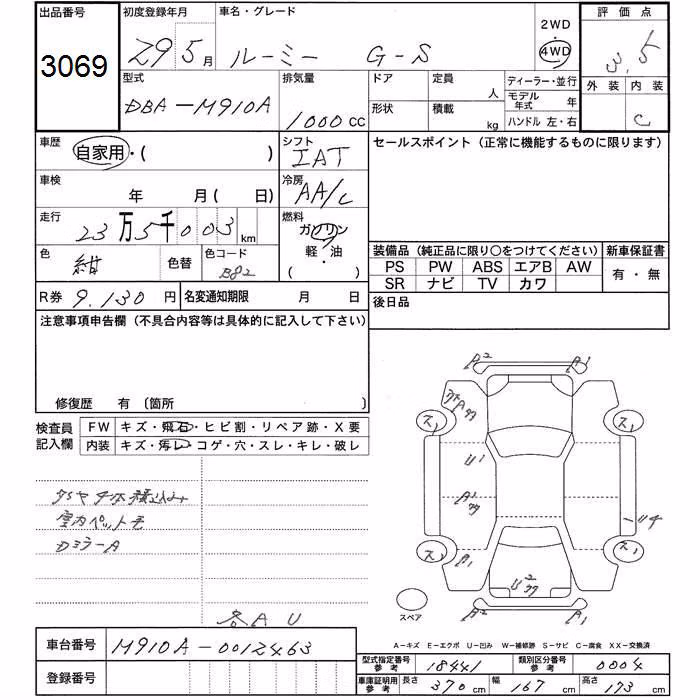 出品番号 3069
初度登録年月 29 5月
車名・グレード ルーミー G-S
2WD 4WD
評価点 3.5
型式 DBA-M910A
排気量 1000cc
ドア 定員 人
形状 積載 kg
ディーラー・並行
モデル年式 年
ハンドル 左・右
外装 内装 C
車歴 自家用・( )
シフト IAT
セールスポイント (正常に機能するものに限ります)
車検 年 月( 日)
冷房 AA/C
走行 23万5千003km
燃料 ガソリン 軽・油 ( )
色 紺 色替 色コード B82
装備品 (純正品に限り○をつけてください) 新車保証書
PS PW ABS エアB AW 有・無
SR ナビ TV カワ
R券 9.130円 名変通知期限 月 日
後日品
注意事項申告欄 (不具合内容等は具体的に記入して下さい)
修復歴 有 〔箇所 〕
検査員記入欄 FW キズ・飛石・ヒビ割・リペア跡・X要
内装 キズ・汚レ・コゲ・穴・スレ・キレ・破レ
A2 A1
ス ス
U1
A1
リチ
ス ス
A1
U2
A2 A1
スペア
タイヤ4本積込み
室内ペット毛
Dミラ-A
各A U
A-キズ E-エクボ U-凹み W-補修跡 S-サビ C-腐食 XX-交換済
車台番号 M910A-0012463
登録番号
型式指定番号参考 18441 類別区分番号参考 0004
車庫証明用参考 長さ 370cm 幅 167cm 高さ 173cm